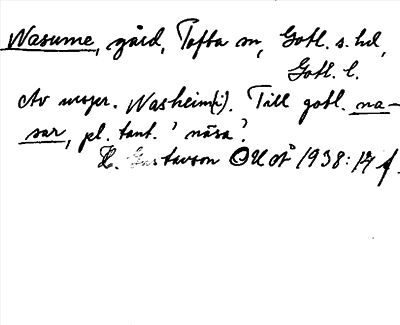 Nasume, gård, Tofta sn, Gotl. s. hd,
Gotl. l.
Av urspr. Nasheim(i). Till gotl. na-
sar, pl. tant. 'näsa'.
H. Gustavson OUÅ 1938: 17 f.